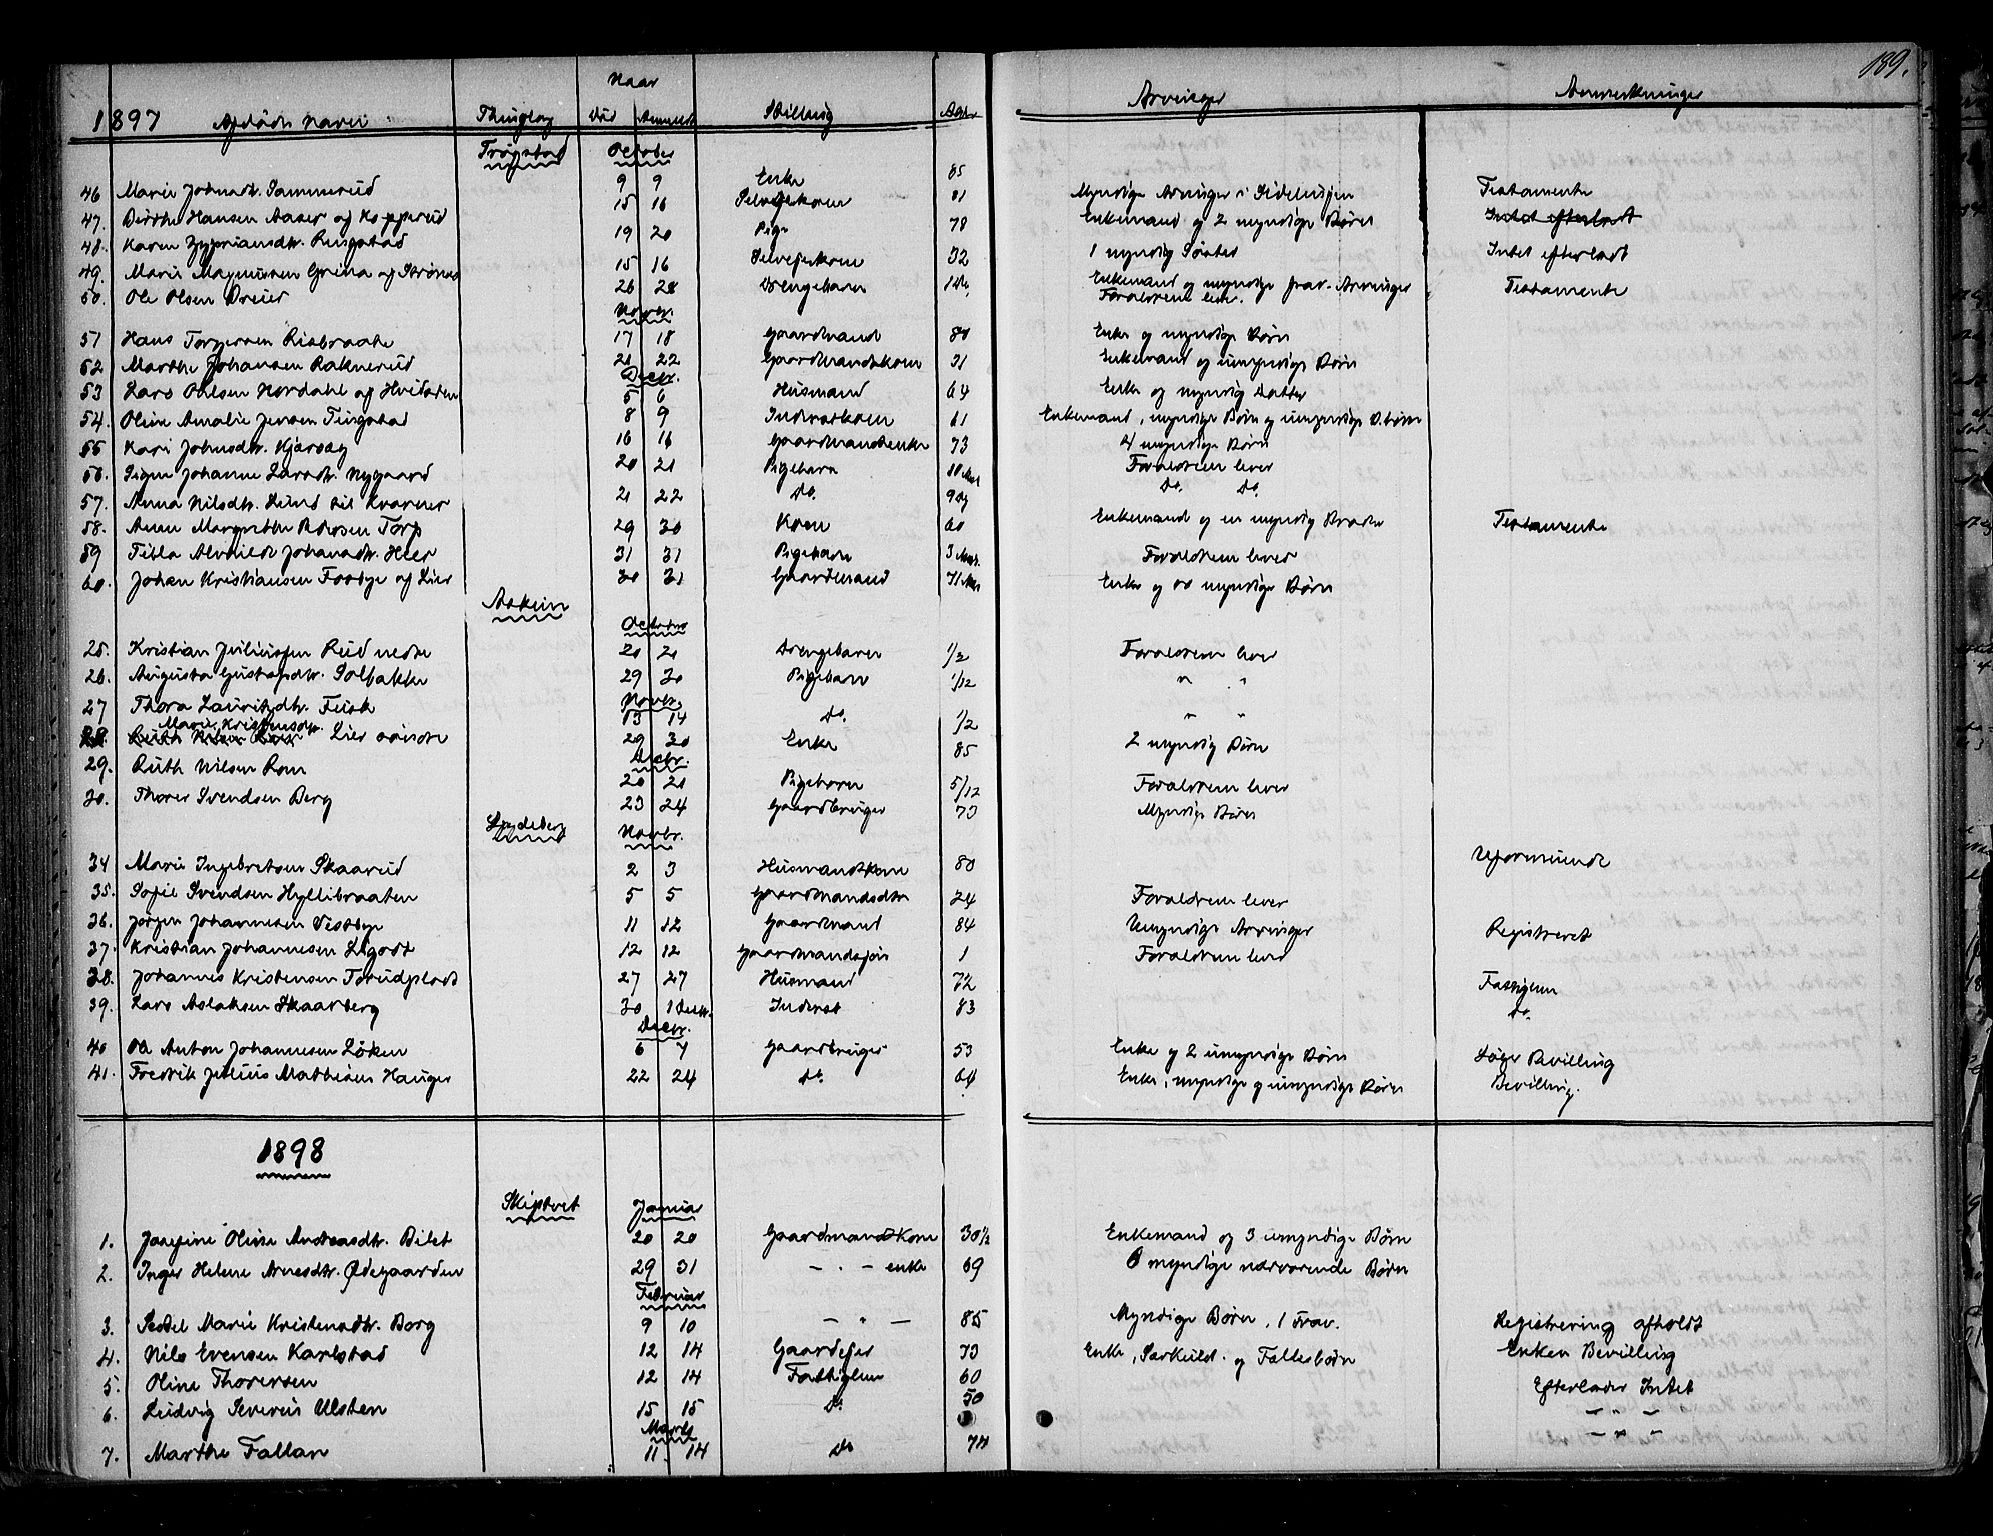 189.
Naar
1897 Afdødes Navn Thinglag Død Anmeldt Stilling Alder Arvinger Anmerkninger
Trøgstad October
46 Marie Johnsdtr. Sammerud 9 9 Enke 85 Myndige Arvinger Testamente
47. Dorthe Hansen Aaser og Kopperud 15 16 Selveierkone 81 Enkemand og 2 myndige Børn Intet efterladt
48. Karen Zypriansdtr. Ringstad 19 20 Pige 78 1 myndig Intet efterladt
49. Marie Magnussen Grina og Strønes 15 16 Selveierkone 32 Enkemand og myndige frav. Arvinger Testamente
50. Ole Olsen 26 28 Drengebarn Forældrene lever.
Novbr.
51 Hans Torgersen Risbraate 17 18 Gaardmand 80 Enke og myndige Børn
52 Marthe Johansen Raknerud 21 22 Gaardmandskone 31 Enkemand og umyndige Børn
Decbr.
53 Lars Ohlsen Nordahl og Hvilsten 5 6 Husmand 64 Enke og myndig Datter
54. Oline Amalie Jensen Tingstad 8 9 Inderstkone 61 Enkemand, myndige Børn og umyndige D. børn
55 Kari Johnsdtr. Kjærsøg 16 16 Gaardmandsenke 73 4 myndige Børn
56. Signe Johanne Larsdtr. Nygaard 20 21 Pigebarn 10 Mnd Forældrene lever
57. Anna Nilsdtr. Lund 21 22 Do. 9 Dg Do. Do.
58. Anne Margrethe Torp 29 30 Kone 60 Enkemand og en myndig Broder Testamente
59 Tilla Alvilde Johansdtr. Heer 31 31 Pigebarn 3 Mnd. Forældrene lever
60. Johan Kristiansen Fosbye og Lier 30 31 Gaardmand 71 Enke og 10 myndige Børn
Askim
October
25. Kristian Juliussen Rud nedre 20 21 Drengebarn 1/2 Forældrene lever
26. Augusta Gustafsdtr. Solbakke 29 30 Pigebarn 1/12 " "
Novbr.
27 Thora Lauritzdtr. Fusk 13 14 Do. 1/2 " "
28 Marie Kristensdtr. Lier søndre 29 30 Enke 85 2 myndig Børn
Decbr.
29. Ruth Nilsen Rom 20 21 Pigebarn 5/12 Forældrene lever
30. Thorer Svendsen Berg 23 24 Gaardbruger 73 Myndige Børn
Spydeberg Novbr.
34 Marie Ingebretsen Skaarud 2 3 Husmandskone 80 Uformuende
35. Sofie Svendsen Hyllibraaten 5 5 Gaardmandsdtr 24 Forældrene lever
36. Jørgen Johannesen Vestbye 11 12 Gaardmand 84 Umyndige Arvinger Registreret
37. Kristian Johannesen Ligodt 12 12 Gaardmandssøn 1 Forældrene leve
38. Johannes Kristensen Forudplads 27 27 Husmand 72 Fattiglem
39. Lars Aslaksen Skaarberg 30 1 Decbr. Inderst 83 Do.
Decbr.
40 Ole Anton Johannesen Løken 6 7 Gaardbruger 53 Enke og 2 umyndige Børn Søger Bevilling
41. Fredrik Julius Mathisen Hauger 22 24 Do. 64 Enke, myndige og umyndige Børn Bevilling.
1898
Skiptvet Januar
1. Josefine Oline Andreasdtr. Bilet 20 20 Gaardmandskone 30 1/2 Enkemand og 3 umyndige Børn
2. Inger Helene Arnesdtr. Ødegaarden 29 31 — " — enke 69 6 myndige nærværende Børn
Februar
3. Sedsel Marie Kristensdtr. Borg 9 10 — " — 85 Myndige Børn, 1 Frav. Registrering afholdt
4. Nils Evensen Karlstad 12 14 Gaardejer 73 Enke, Særkuld. og Fællesbørn Enken Bevilling
5. Oline Thoresen 12 14 Fattiglem 60 Efterlader Intet
6. Ludvig Severin Ulsten 15 15 Do. 50 — " —
Marts
7. Marthe Fallan 11 14 Do 74 — " —